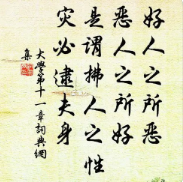 好人之所惡
惡人之所好
是謂拂人之性
災必逮夫身
大學第十一章詞典網
集